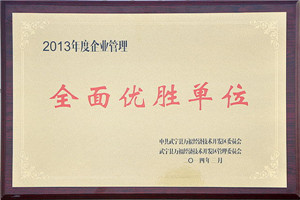 2013年度企业管理
全面优胜单位
中共武宁县万福经济技术开发区委员会
武宁县万福经济技术开发区管理委员会
二〇一四年二月